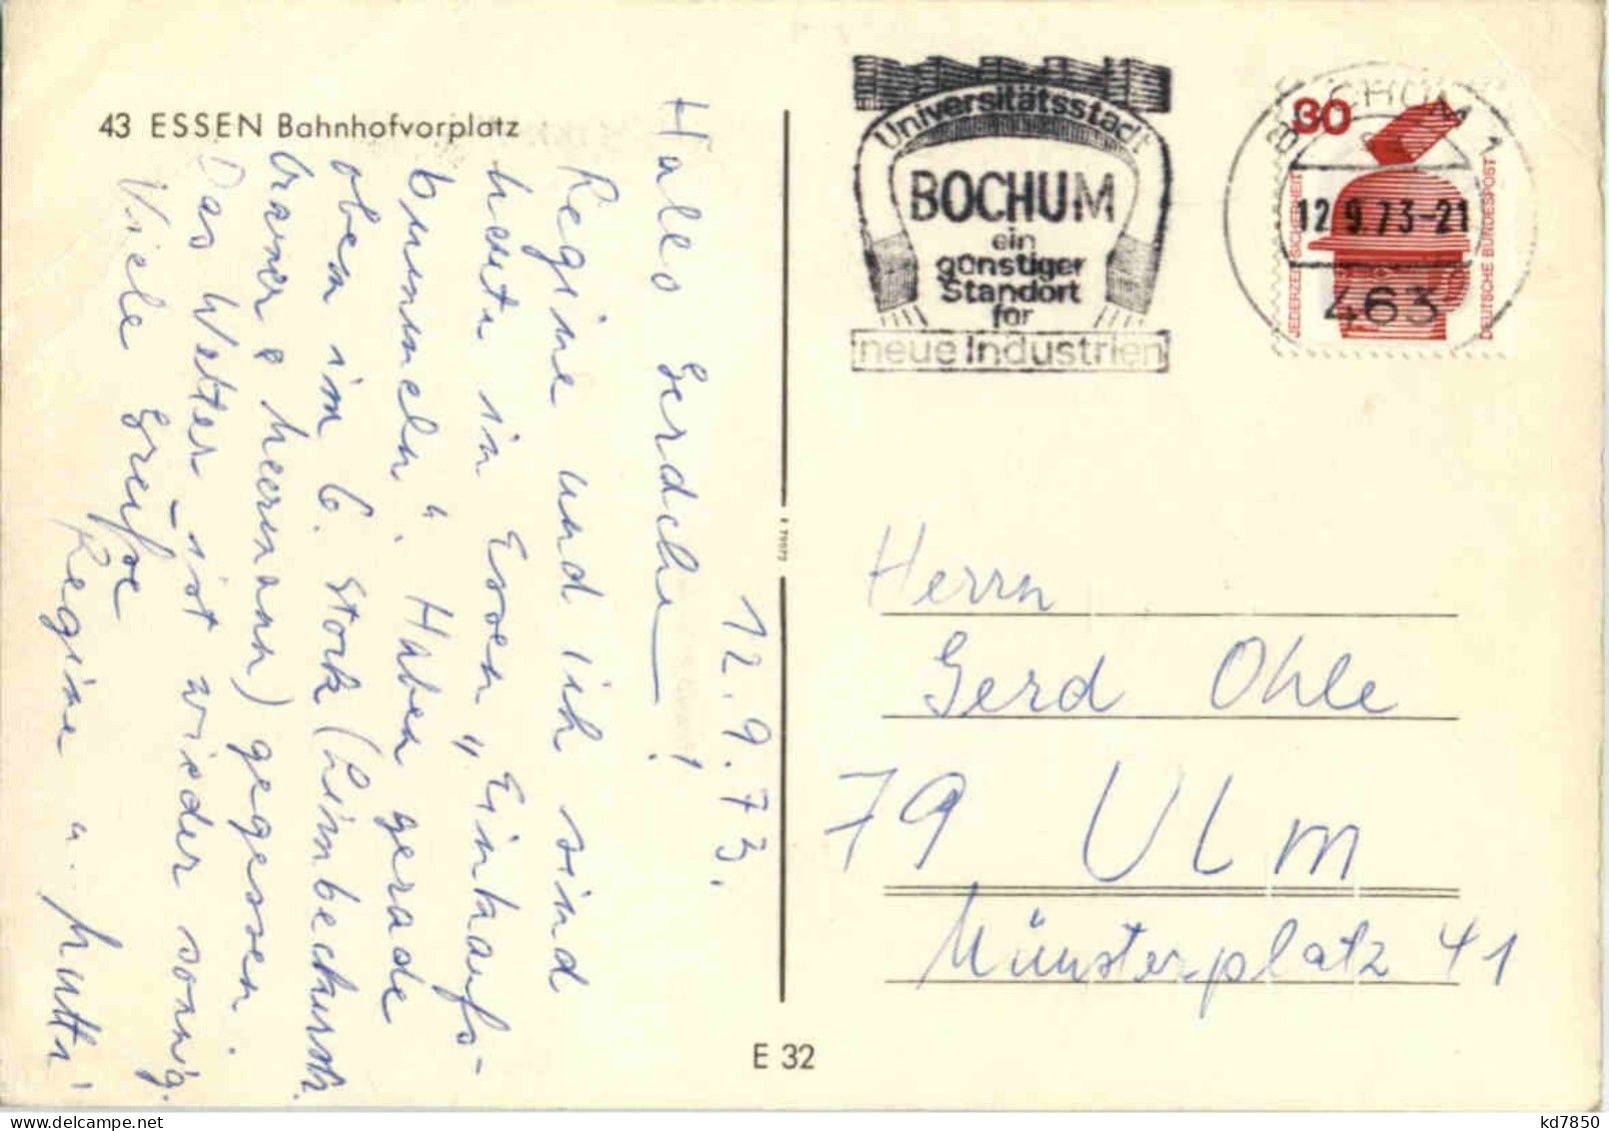 43 ESSEN Bahnhofvorplatz
12.9.73.
Hallo Gerdchen!
Regine und ich sind
heute in Essen „Einkaufs-
bummeln“. Haben gerade
oben im 6. Stock (Limbeckerstr.
cramer & meermann) gegessen.
Das Wetter ist wieder sonnig.
Viele Grüße
Regine u. Mutti
E 32
Universitätsstadt
BOCHUM
ein
günstiger
Standort
für
neue Industrien
BOCHUM 1
12.9.73-21
463
30
JEDERZEIT SICHERHEIT
DEUTSCHE BUNDESPOST
Herrn
Gerd Ohle
79 Ulm
Münsterplatz 41
kd7850